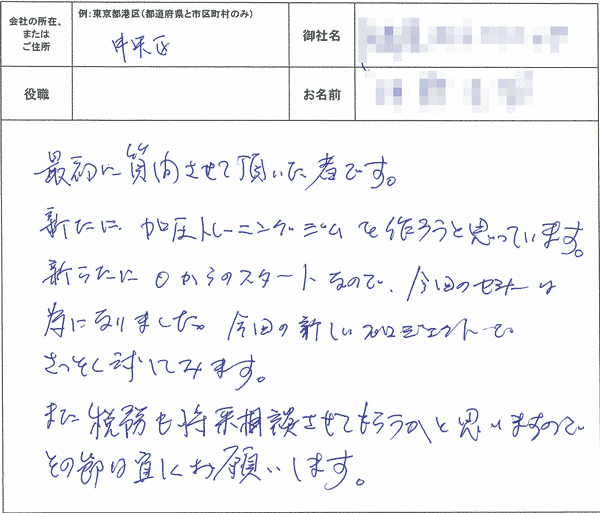 会社の所在、
または
ご住所
例：東京都港区（都道府県と市区町村のみ）
中央区
御社名
役職
お名前
最初に質問させて頂いた者です。
新たに加圧トレーニングジムを作ろうと思っています。
新らたに0からのスタートなので、今回のセミナーは
為になりました。今回の新しいプロジェクトで
さっそく試してみます。
また税務も将来相談させてもらうかと思いますので
その節は宜しくお願いします。